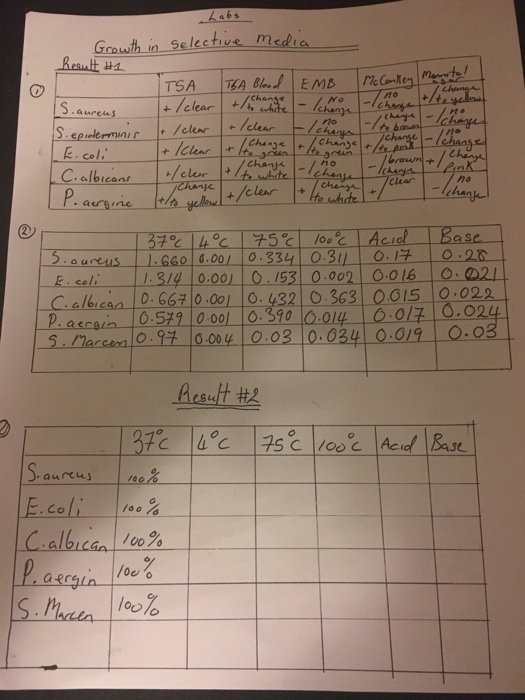 Labs
Growth in selective media
Result #1
① TSA TSA Blood EMB McConkey Mannotal
S. aureus + /clear + /change to white - /No change - /no change + /change to yellow
S. epidermis + /clear + /clear - /no change - /change to brown - /no change
E. coli + /clear + /change to green + /change to green + /change to pink - /no change
C. albicans + /clear + /change to white - /no change - /brown change + /change Pink
P. aergine + /change to yellow + /clear + /change to white + /clear - /no change
② 37°C 4°C 75°C 100°C Acid Base
S. aureus 1.660 0.001 0.334 0.311 0.17 0.28
E. coli 1.314 0.001 0.153 0.002 0.016 0.021
C. albican 0.667 0.001 0.432 0.363 0.015 0.022
P. aergin 0.579 0.001 0.390 0.014 0.017 0.024
S. Marcen 0.97 0.004 0.03 0.034 0.019 0.03
Result #2
37°C 4°C 75°C 100°C Acid Base
S. aureus 100%
E. coli 100%
C. albican 100%
P. aergin 100%
S. Marcen 100%